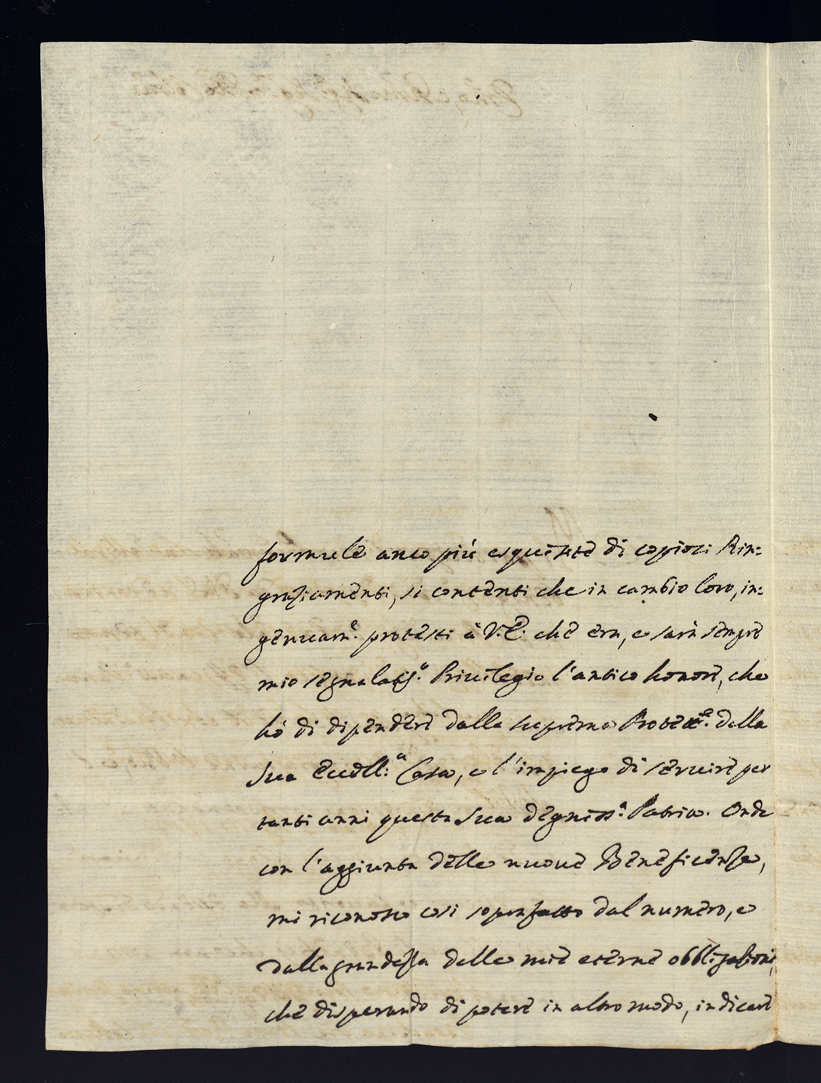 formule anco più esquisite di copiosi Rin:
graziamenti, si contenti che in cambio loro, in:
genuam.e protesti à V.E: che era, e sarà sempre
mio segnalatiss.o Privilegio l'antico honore, che
hò di dipendere dalla suprema Protez.e della
Sua Eccell.a Casa, e l'impiego di servire per
tanti anni questa Sua degniss.a Patria. Onde
con l'aggiunta delle nuove Beneficenze,
mi riconosco così soprafatto dal numero, e
dalla grandezza delle mie eterne obbligazioni,
che disperando di potere in altro modo, indicare